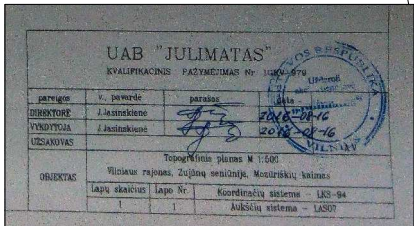 UAB "JULIMATAS"
KVALIFIKACINIS PAŽYMĖJIMAS Nr 1GKV-979
pareigos v., pavardė parašas data
DIREKTORĖ J.Jasinskienė 2016-08-16
VYKDYTOJA J.Jasinskienė 2016-08-16
UŽSAKOVAS
OBJEKTAS
Topografinis planas M 1:500
Vilniaus rajonas, Zujūnų seniūnija, Mozūriškių kaimas
Lapų skaičius Lapo Nr. Koordinačių sistema - LKS-94
1 1 Aukščių sistema - LAS07
VOS RESPUBLIKA
VILNIUS